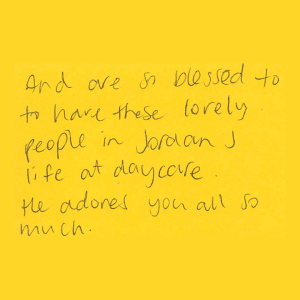 And are so blessed to
to have these lovely
people in Jordan J
life at daycare.
He adores you all so
much.